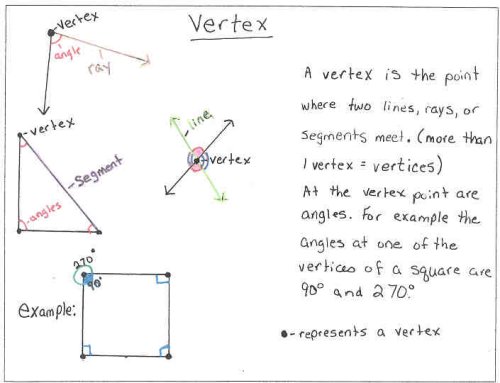 Vertex
vertex
angle
ray
vertex
segment
angles
line
vertex
A vertex is the point
where two lines, rays, or
segments meet. (more than
1 vertex = vertices)
At the vertex point are
angles. For example the
angles at one of the
vertices of a square are
90° and 270°.
270°
90°
example:
●- represents a vertex